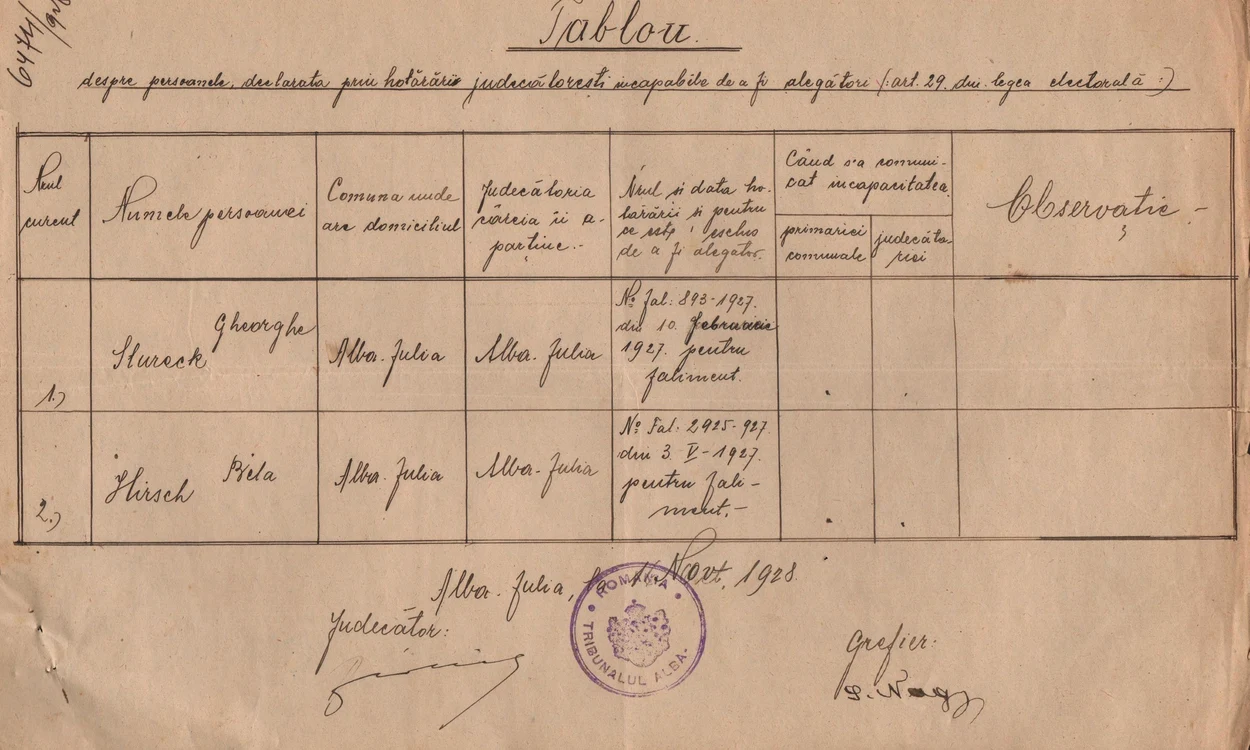 6474/
Tablou.
despre persoanele, declarata prin hotărârio judecătorești incapabile de a fi alegători (: art. 29. din legea electorală :)
Nrul
curent
Numele persoanei
Comuna unde
are domiciliul
Judecătoria
căreia îi a-
partine.-
Nrul si data ho-
tărârii si pentru
ce este esclus
de a fi alegător.
Când s'a comuni-
cat incapacitatea
primariei
comunale
judecăto-
riei
Observație -
1.)
Gheorghe
Stureck
Alba-Julia
Alba-Julia
No Fal: 893-1927.
din 10. februarie
1927. pentru
faliment.
2.)
Hirsch Béla
Alba-Julia
Alba-Julia
No Fal: 2925-927.
din 3. V-1927.
pentru fali-
ment.-
Alba-Julia, Nov. 1928.
Judecător:
ROMANIA
TRIBUNALUL ALBA-
Grefier:
S. Nagy